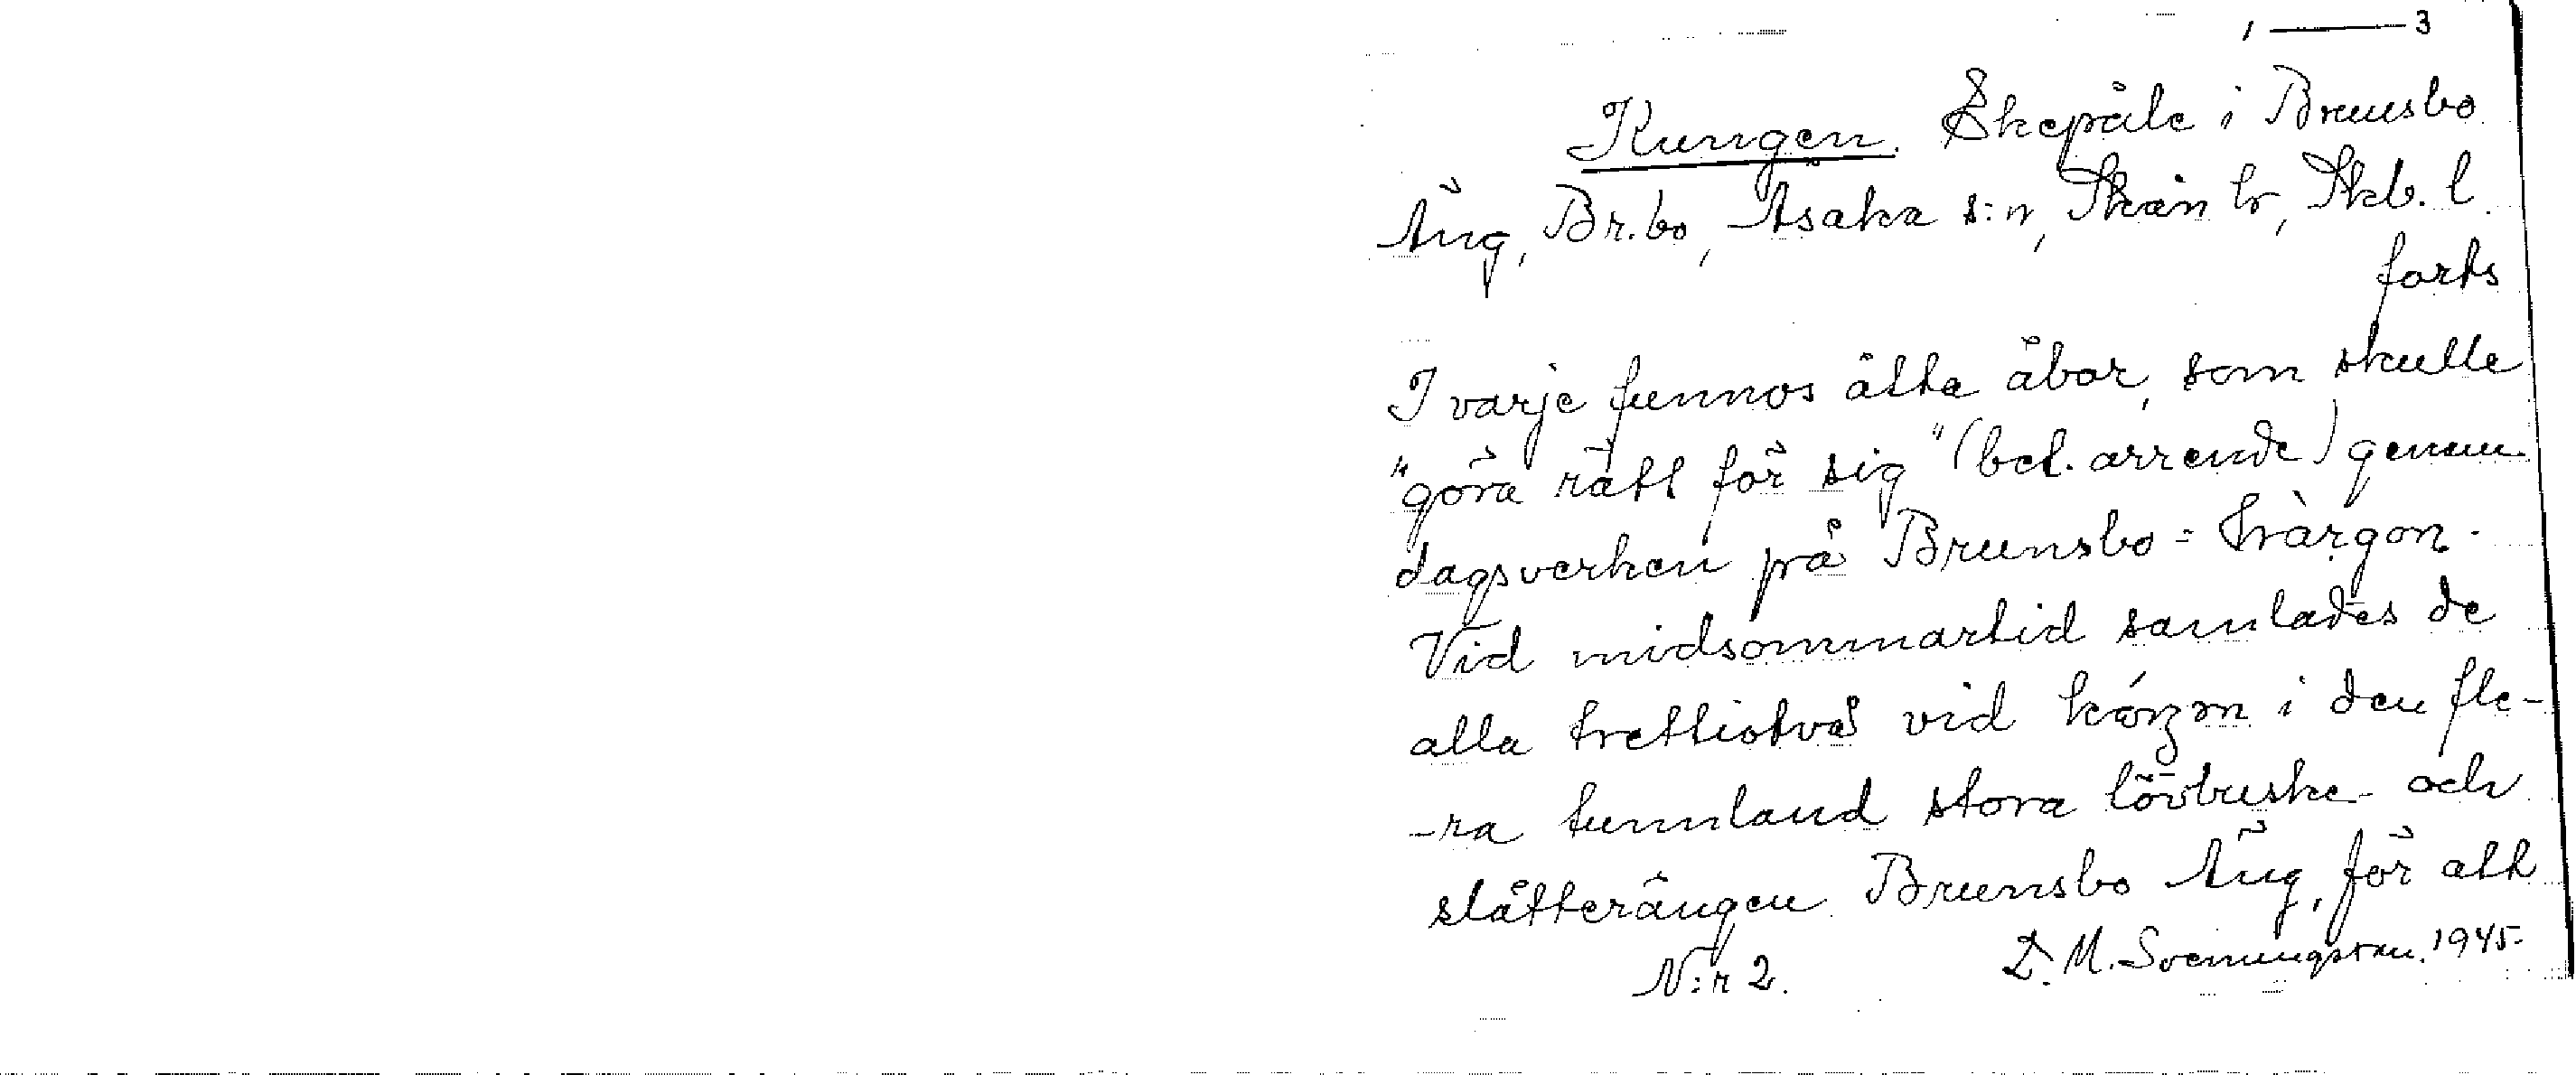 1 — 3
Kungen. Skepåle i Brunsbo
Äng, Br.bo, Åsaka s:n, Skån hr, Skb. l.
forts
I varje funnos åtta åbor, som skulle
"göra rätt för sig" (bet. arrende) genom
dagsverken på Brunsbo =
Vid midsommartid samlades de
alla trettiotvå vid i den fle-
-ra tunnland stora lövbuske- och
slåtterängen Brunsbo Äng, för att
N:r 2. D. M. Svenungsson. 1945